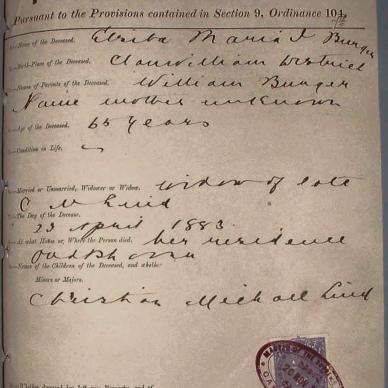 Pursuant to the Provisions contained in Section 9, Ordinance 104,
Name of the Deceased. Elsiba Maria J Burger
Birth-Place of the Deceased. Clanwilliam District
Names of Parents of the Deceased. William Burger
Name mother unknown
Age of the Deceased. 65 years
Condition in Life.
Married or Unmarried, Widower or Widow. Widow of late
C M Lind
The Day of the Decease.
23 April 1883
At what House or, Where the Person died. her residence
Oudtshoorn
Names of the Children of the Deceased, and whether
Minors or Majors.
Christian Michael Lind
Whether deceased has left any Property, and of